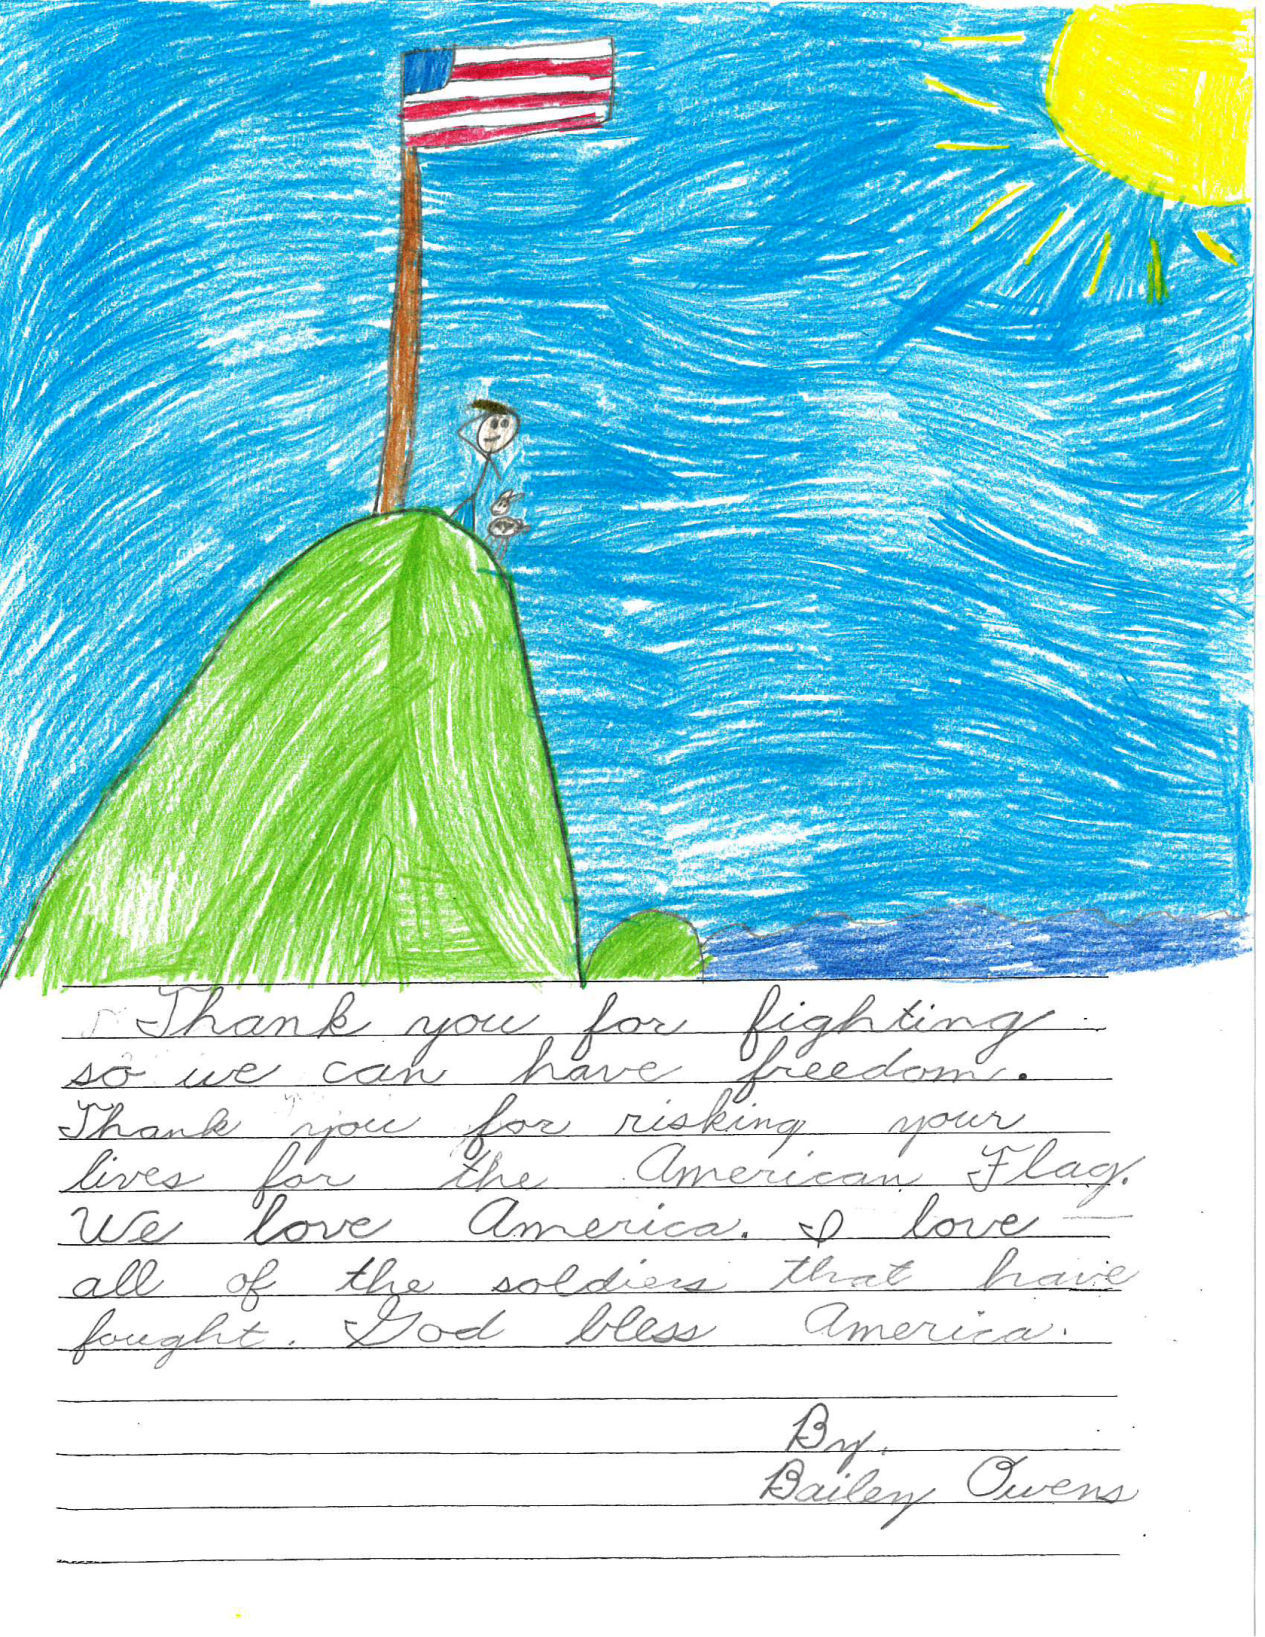 Thank you for fighting
so we can have freedom.
Thank you for risking your
lives for the American Flag.
We love America. I love
all of the soldiers that have
fought. God bless America.
By,
Bailey Owens